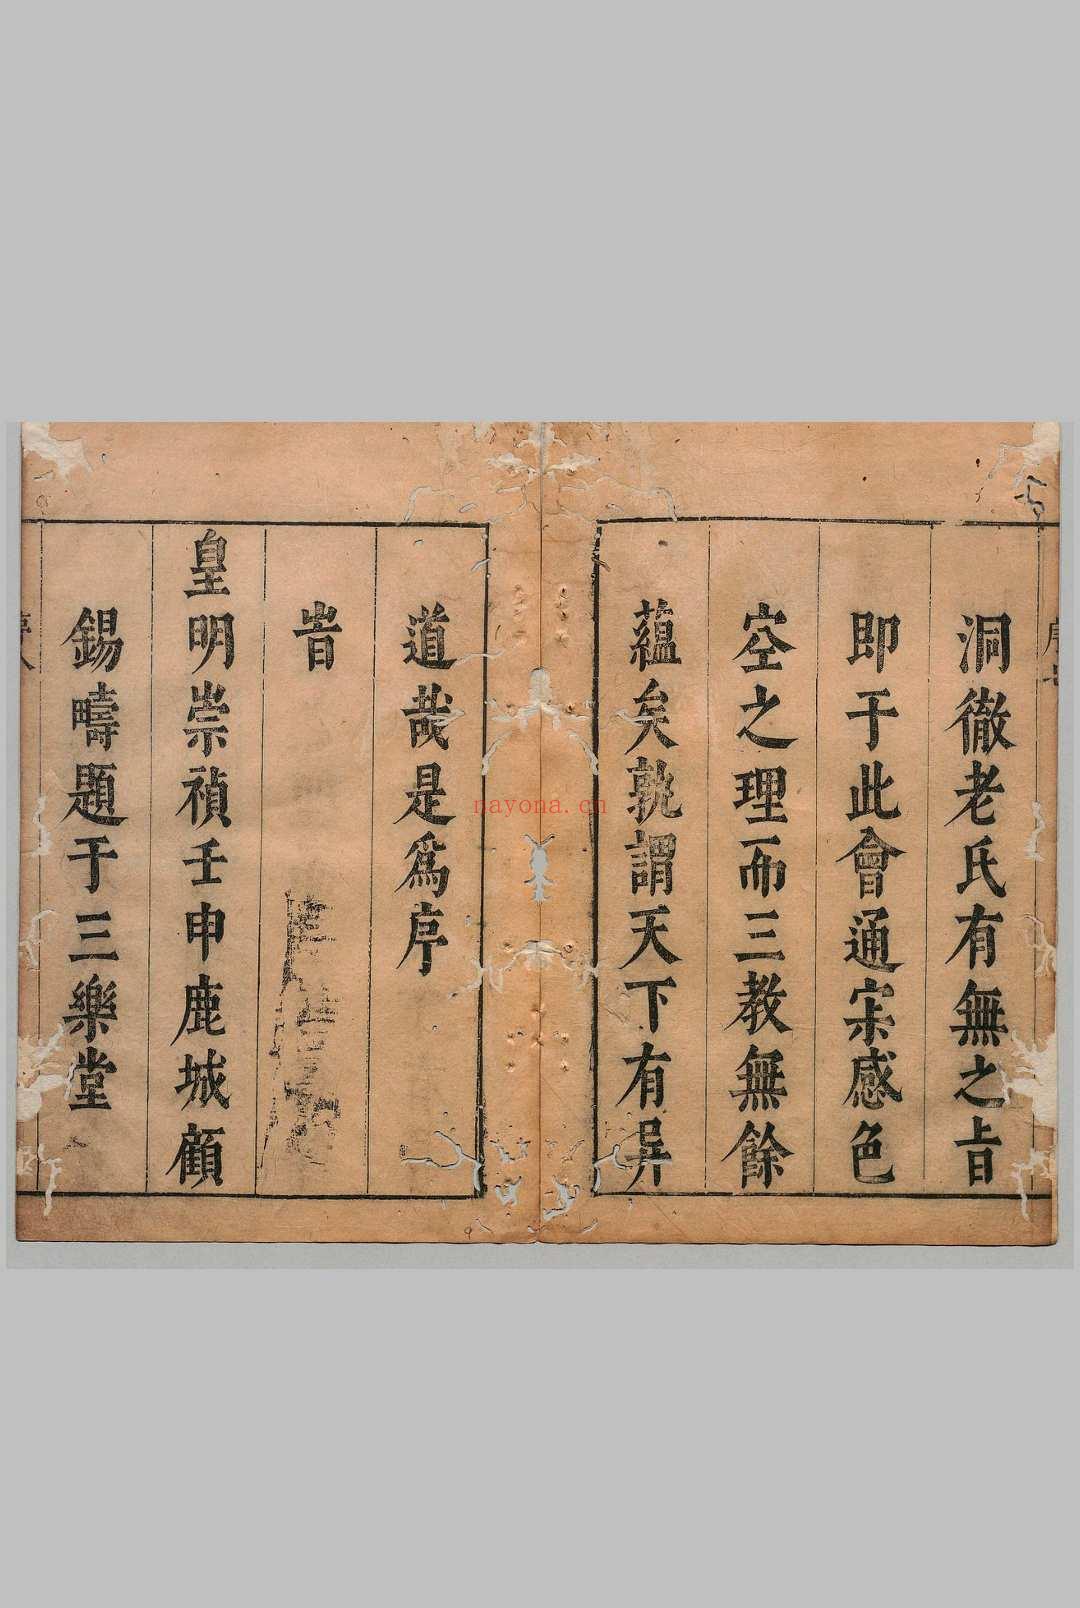 洞徹老氏有無之旨
即于此會通宋感色
空之理而三教無餘
蘊矣孰謂天下有异
道哉是為序
旹
皇明崇禎壬申鹿城顧
錫疇題于三樂堂
nayona.cn